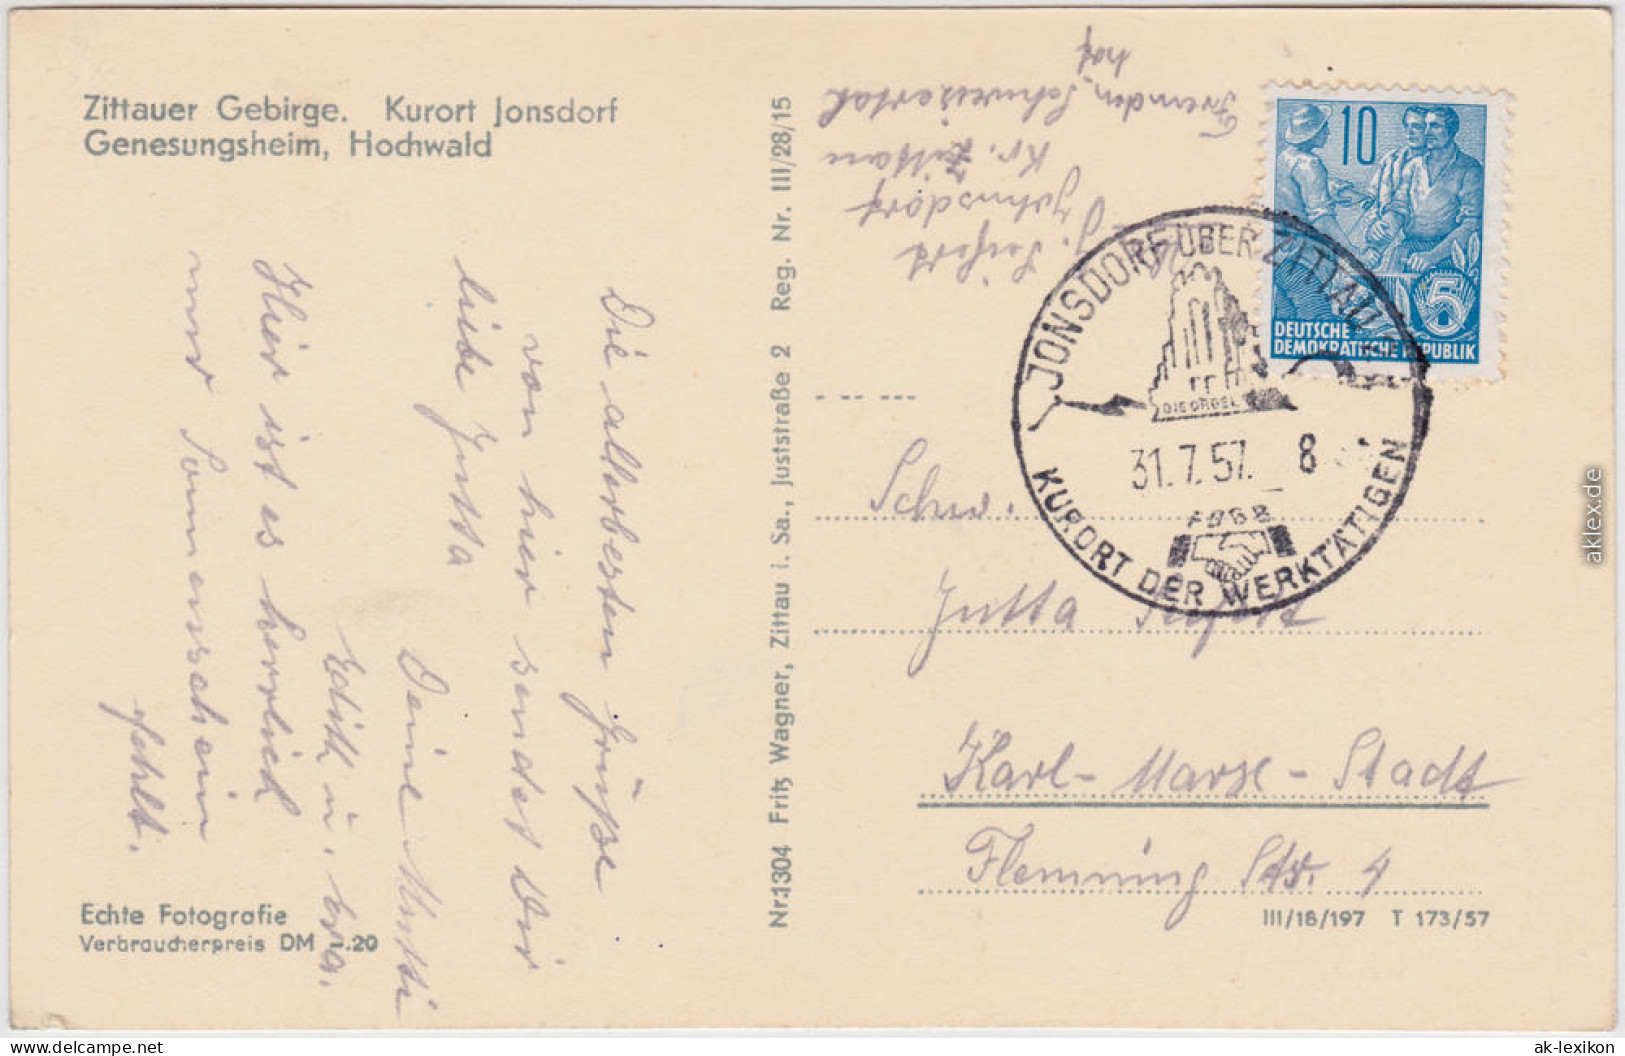 Zittauer Gebirge. Kurort Jonsdorf
Genesungsheim, Hochwald
Die allerbesten Grüße
von hier sendet Dir
liebe Jutta
Deine Mutti
Edith u.
Hier ist es herrlich
nur Sonnenschein
fehlt.
Echte Fotografie
Verbraucherpreis DM -.20
Nr.1304 Fritz Wagner, Zittau i. Sa., Juststraße 2 Reg. Nr. III/28/15
Seifert
Jonsdorf
Kr. Zittau
Fremden Schweizertal
hof
10
5
DEUTSCHE
DEMOKRATISCHE REPUBLIK
JONSDORF ÜBER ZITTAU
DIE ORGEL
31.7.57. 8
FDGB
KURORT DER WERKTÄTIGEN
Schw.
Jutta Seifert
Karl-Marx-Stadt
Flemming Str. 4
III/18/197 T 173/57
aklex.de
delcampe.net
ak-lexikon